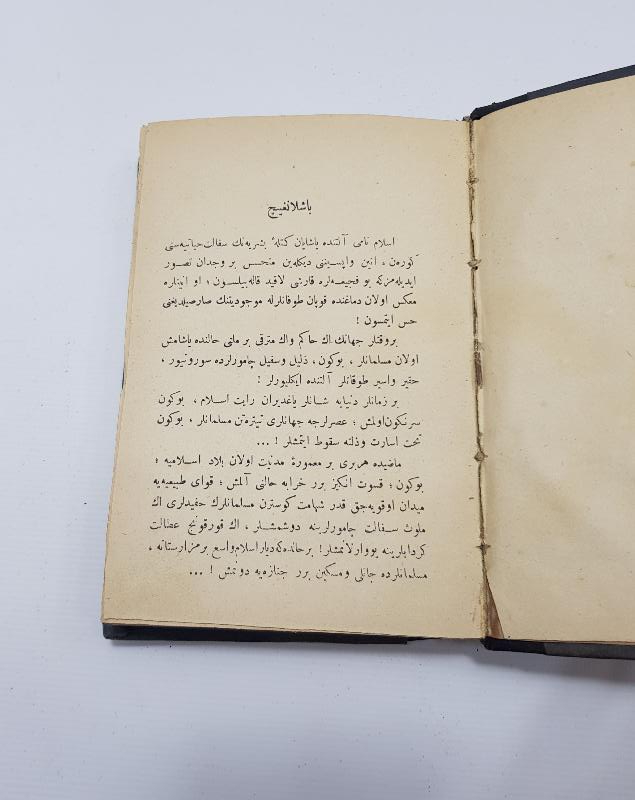 باشلانغیچ
اسلام نامی آلتنده یاشایان کتلهٔ بشریه‌نك سفالت حیاتیه‌سنی
کورەن ، انین واپسینی دیکله‌ین متحسس بر وجدان تصور
ایدیله‌مزکه بو فجیعه‌لره قارشی لاقید قاله‌بیلسون ؛ او انینلره
معکس اولان دماغنده قوپان طوفانلرله موجودیتنك صارصیلدیغنی
حس ایتمسون !
بروقتلر جهانك اك حاکم واك مترقی بر ملتی حالنده یاشامش
اولان مسلمانلر ، بوکون ، ذلیل وسفیل چامورلرده سورونیور ،
حقیر واسیر طوقاتلر آلتنده ایکلیورلر !
بر زمانلر دنیایه شانلر یاغدیران رایت اسلام ، بوکون
سرنکون‌اولمش ؛ عصرلرجه جهانلری تیتره‌تن مسلمانلر ، بوکون
تحت اسارت وذلته سقوط ایتمشلر ! ...
ماضیده هربری بر معمورهٔ مدنیت اولان بلاد اسلامیه ؛
بوکون ؛ قسوت انکیز برر خرابه حالنی آلمش ؛ قوای طبیعیه‌یه
میدان اوقویه‌جق قدر شهامت کوسترن مسلمانلرك حفیدلری اك
ملوث سفالت چامورلرینه دوشمشلر ، اك قورقونج عطالت
کردابلرینه یووارلانمشلر ! برحالده‌که دیار اسلام واسع بر مزارستانه ،
مسلمانلرده جانلی ومسکین برر جنازه‌یه دونمش ! ...